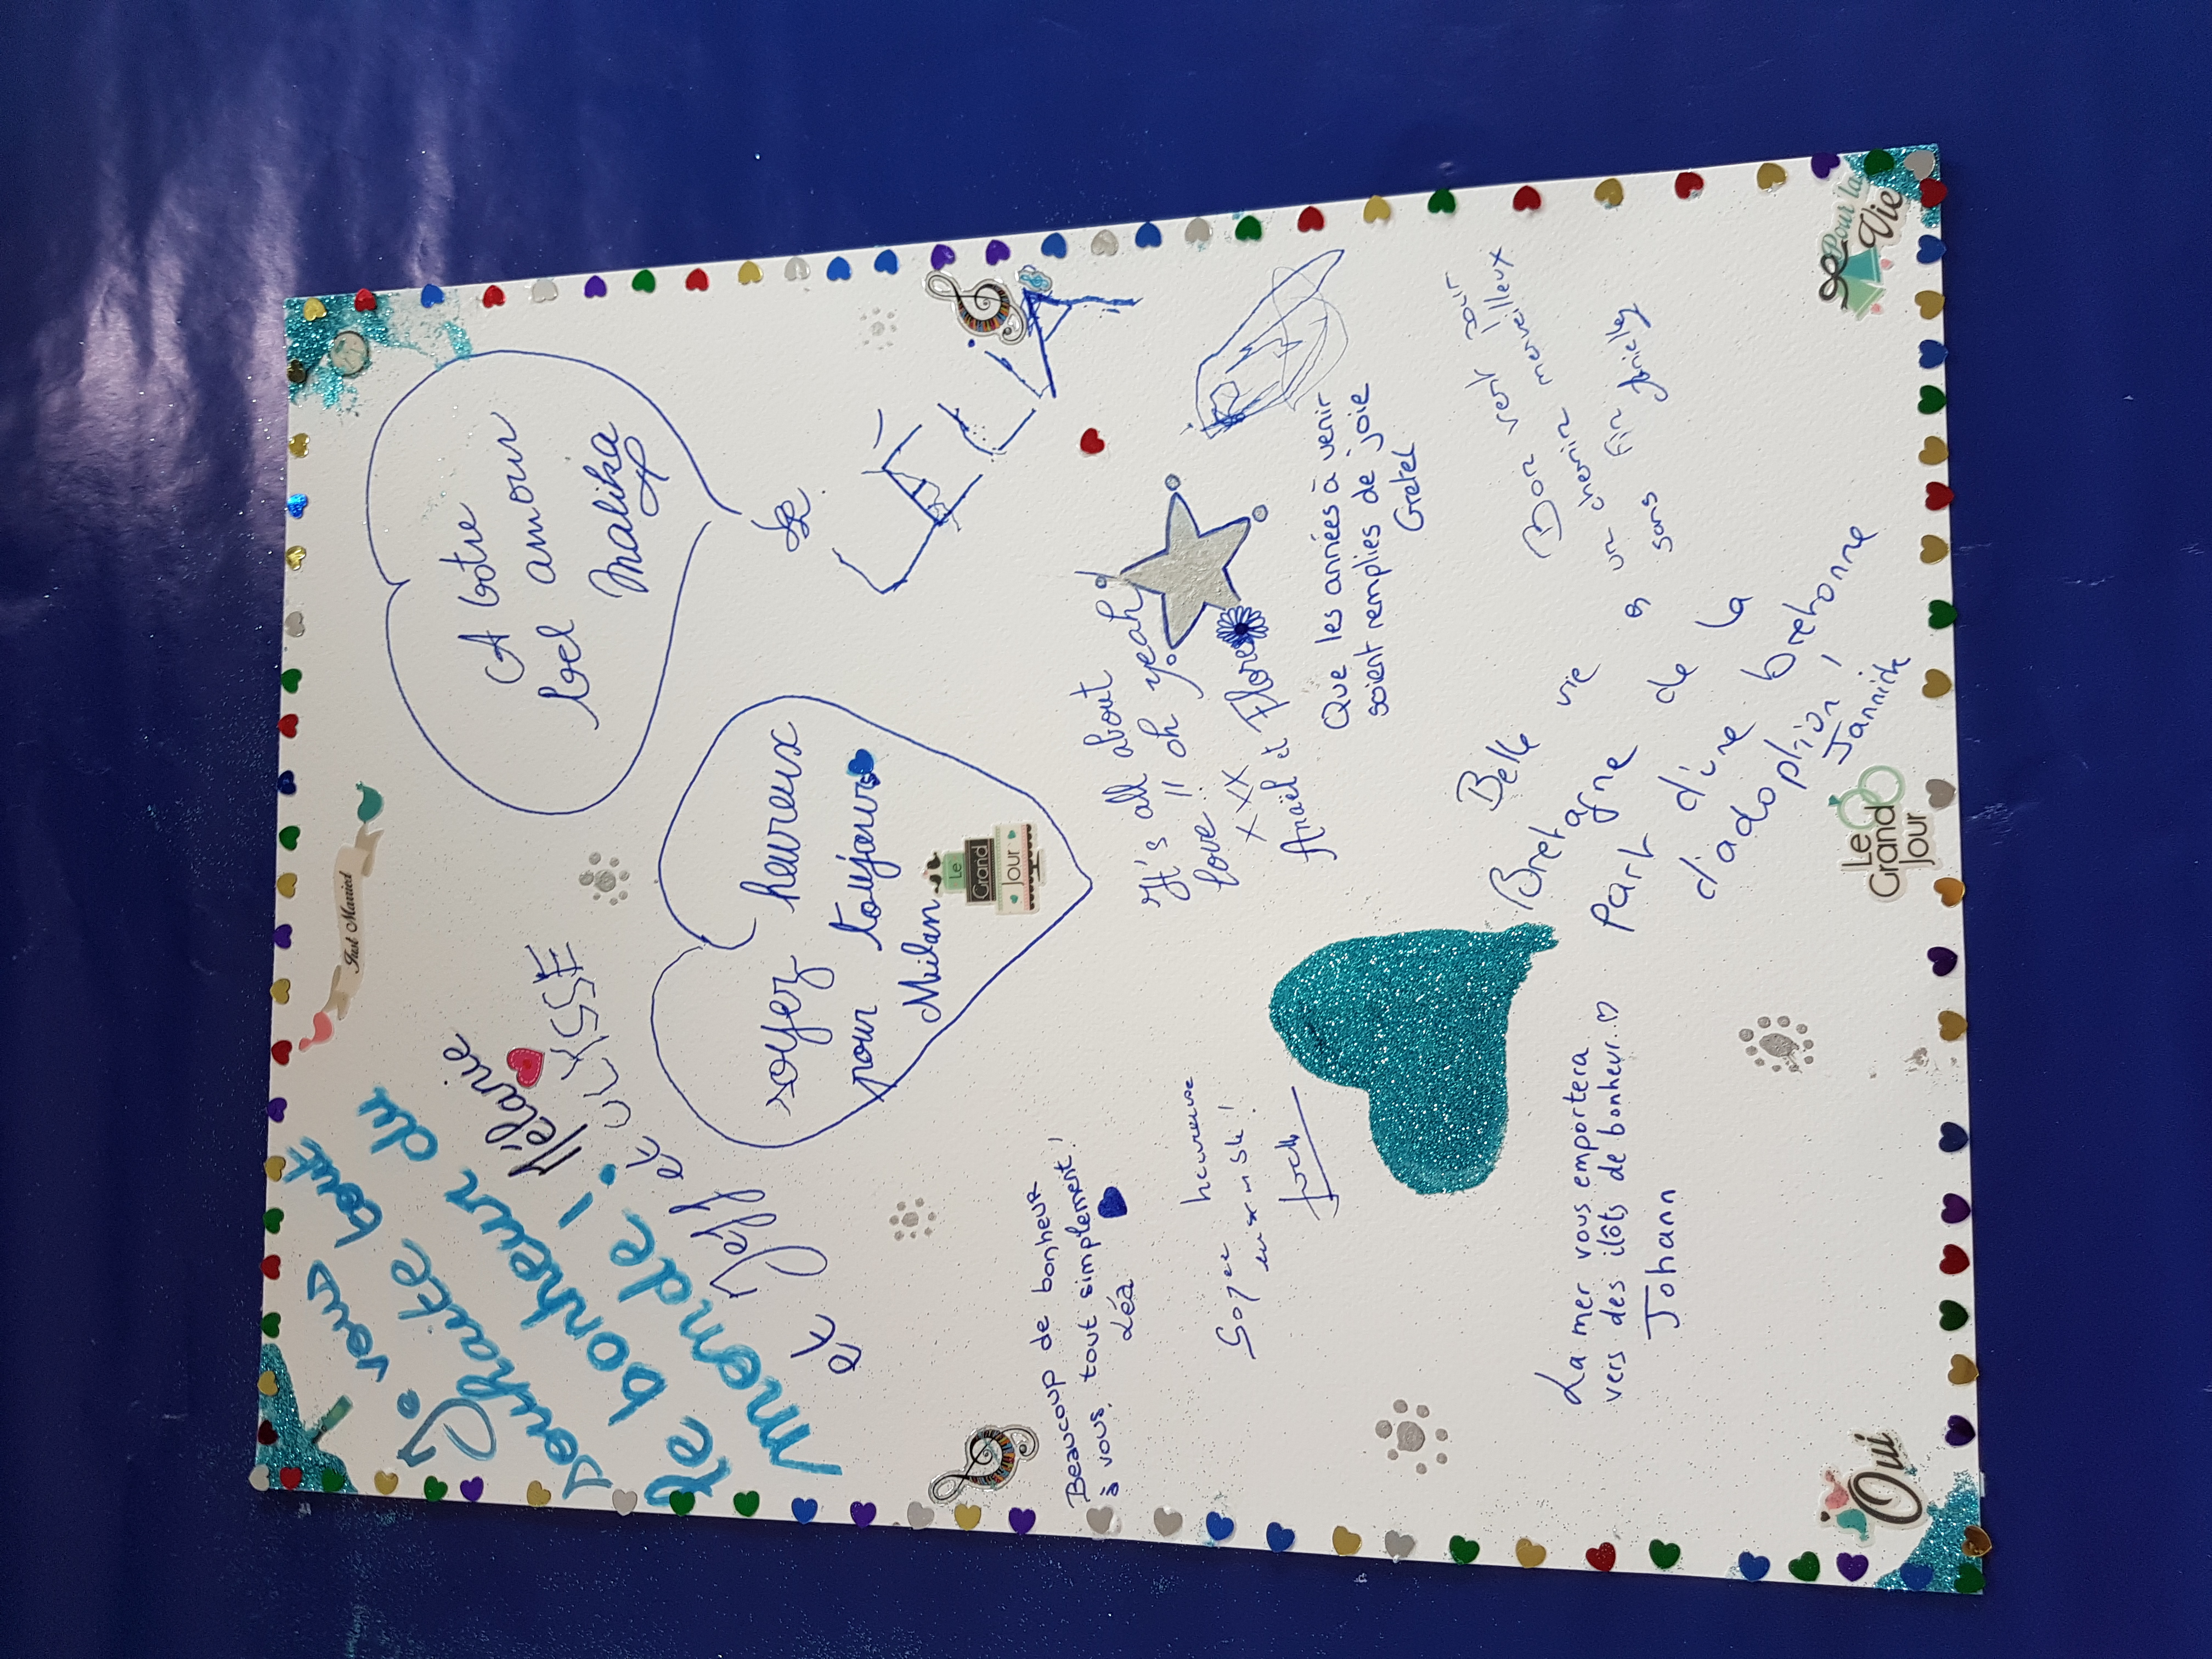 Je vous
souhaite tout
le bonheur du
monde !
Mélanie
et Jeff et ULYSSE
Just Married
A votre
bel amour
Malika
de
soyez heureux
pour toujours
Milan
Le
Grand
Jour
Beaucoup de bonheur
à vous, tout simplement!
Léa
Soyez heureuse
ensemble!
It's all about
love !! oh yeah
xxx
Anaël et Flore
Que les années à venir
soient remplies de joie
Gretel
La mer vous emportera
vers des ilôts de bonheur..
Johann
Belle vie en
Bretagne
Part de la
d'une bretonne
d'adoption!
Jannick
Bon vent pour
un chemin merveilleux
sans fin
Oui
Le
Grand
Jour
Pour la
Vie